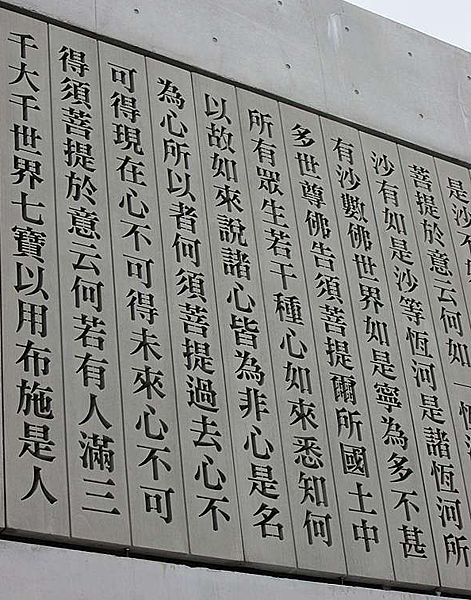 是沙不
菩提於意云何如一恆
沙有如是沙等恆河是諸恆河所
有沙數佛世界如是寧為多不甚
多世尊佛告須菩提爾所國土中
所有眾生若干種心如來悉知何
以故如來說諸心皆為非心是名
為心所以者何須菩提過去心不
可得現在心不可得未來心不可
得須菩提於意云何若有人滿三
千大千世界七寶以用布施是人